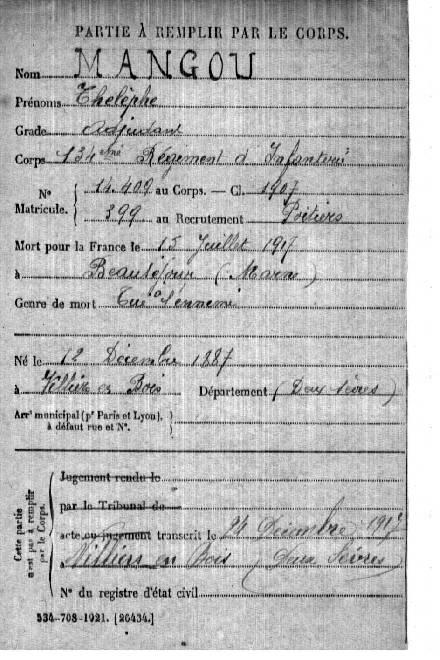 PARTIE À REMPLIR PAR LE CORPS.
Nom MANGOU
Prénoms Thelèphe
Grade Adjudant
Corps 134ème Régiment d'Infanterie
N° Matricule. 14.409 au Corps. — Cl. 1907
399 au Recrutement Poitiers
Mort pour la France le 15 Juillet 1917
à Beauséjour (Marne)
Genre de mort Tué à l'ennemi
Né le 12 Décembre 1887
à Villiers en Bois Département (Deux Sèvres)
Arrt municipal (pr Paris et Lyon), à défaut rue et N°.
Cette partie n'est pas à remplir par le Corps.
Jugement rendu le
par le Tribunal de
acte ou jugement transcrit le 24 Décembre 1917
à Villiers en Bois (Deux Sèvres)
N° du registre d'état civil
534-708-1921. [26434.]